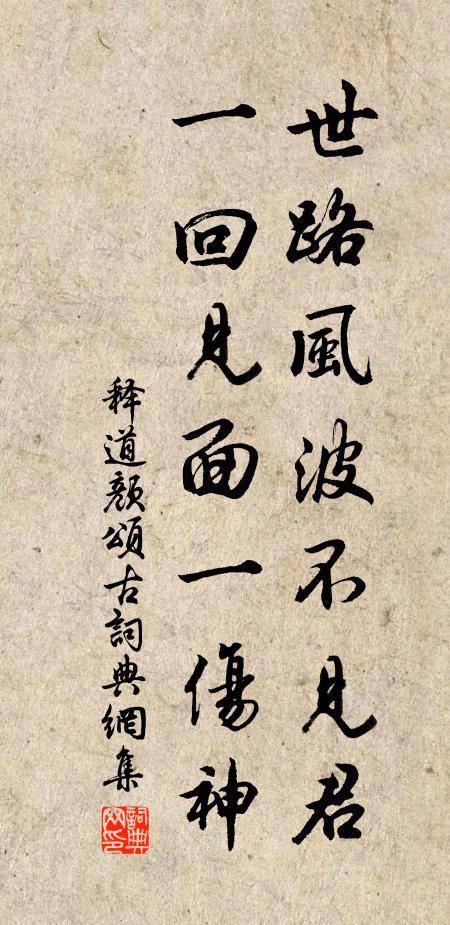 世路風波不見君
一回見面一傷神
释道顏頌古詞典網集
詞典网印